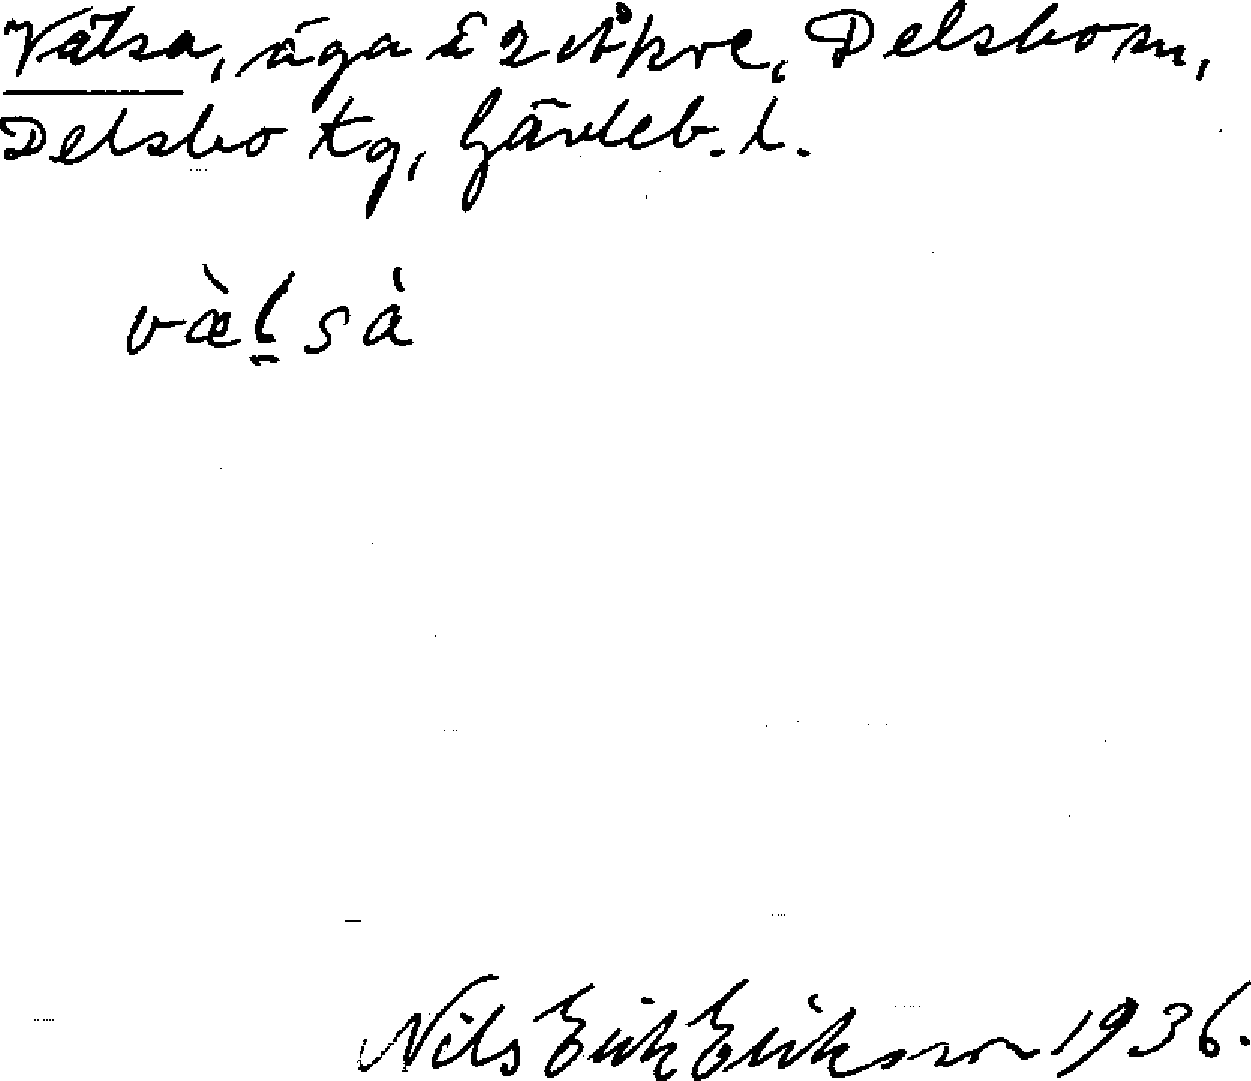 Välsa, äga i 2 Åkre, Delsbo sn,
Delsbo tg, Gävleb. l.
væ̀lsà
Nils Erik Eriksson 1936.